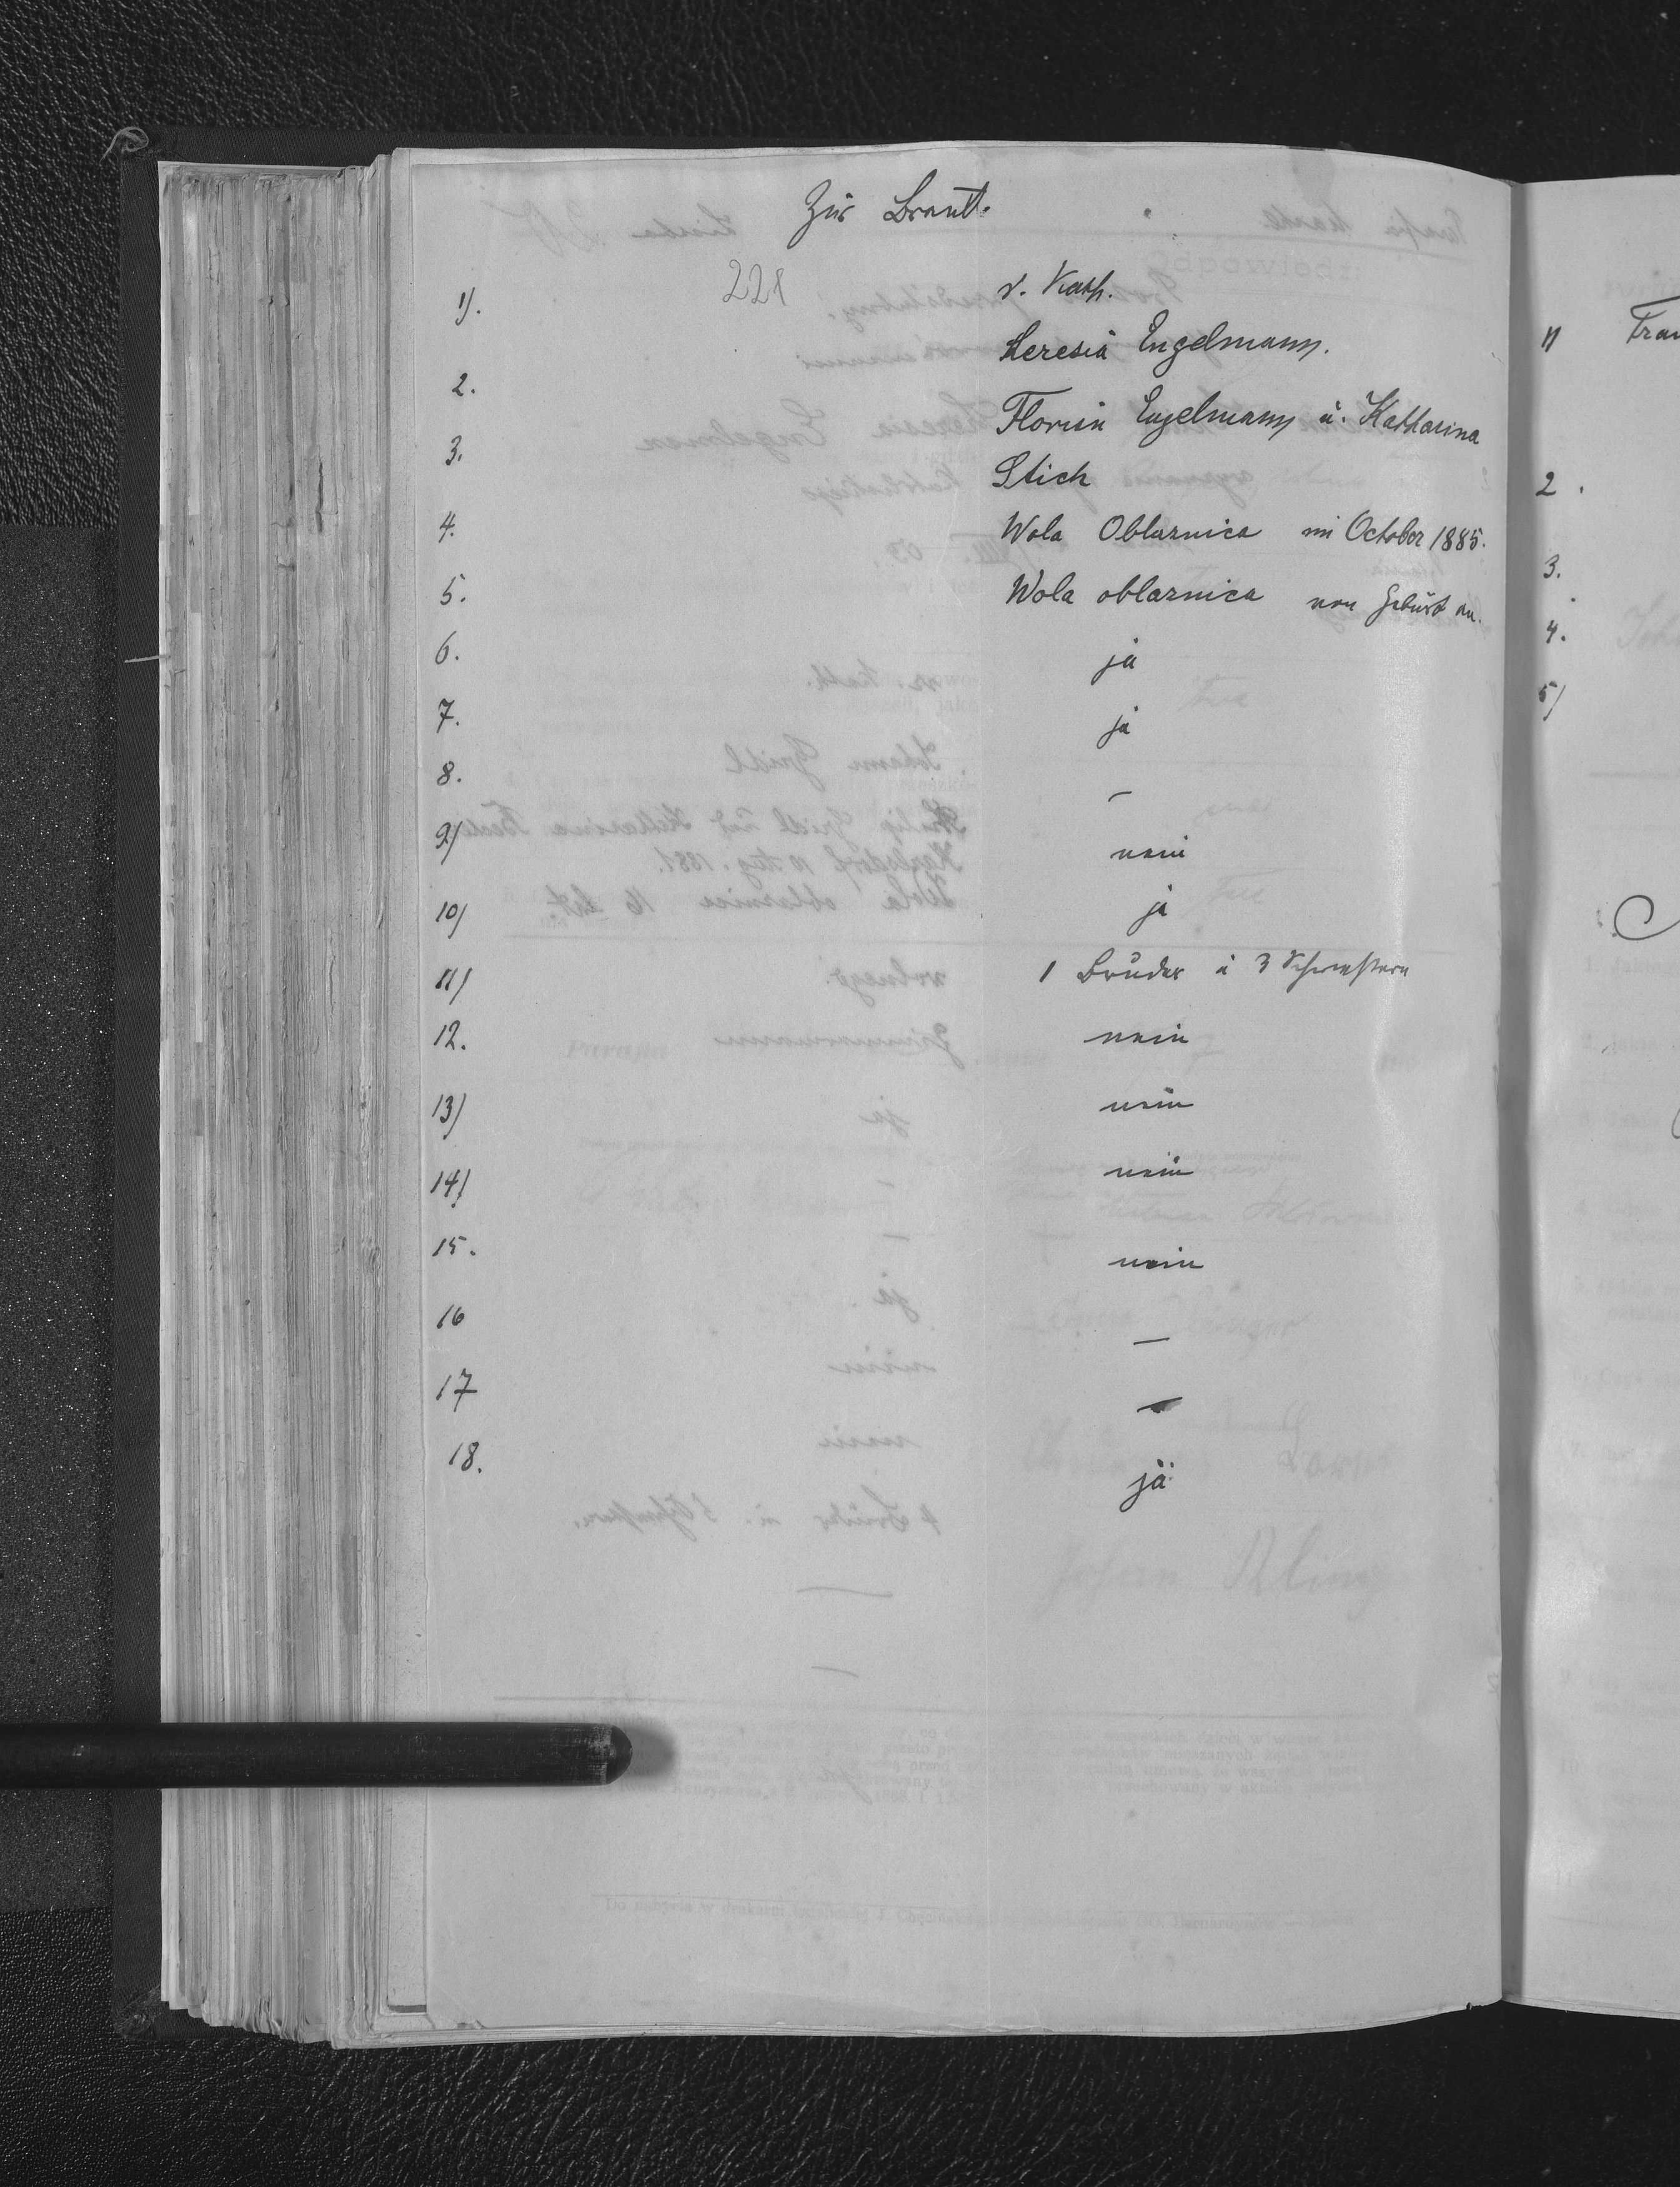 Zur Braut.
221
1). r. Kath.
2. Theresia Engelmann.
3. Florian Engelmann u. Katharina
Stich
4. Wola Oblaznica im October 1885.
5. Wola oblaznica von Geburt an.
6. ja
7. ja
8. –
9) nein
10) ja
11) 1 Bruder u 3 Schwestern
12. nein
13) nein
14) nein
15. nein
16 –
17 –
18. ja
1) Fran
2.
3.
4.
5)